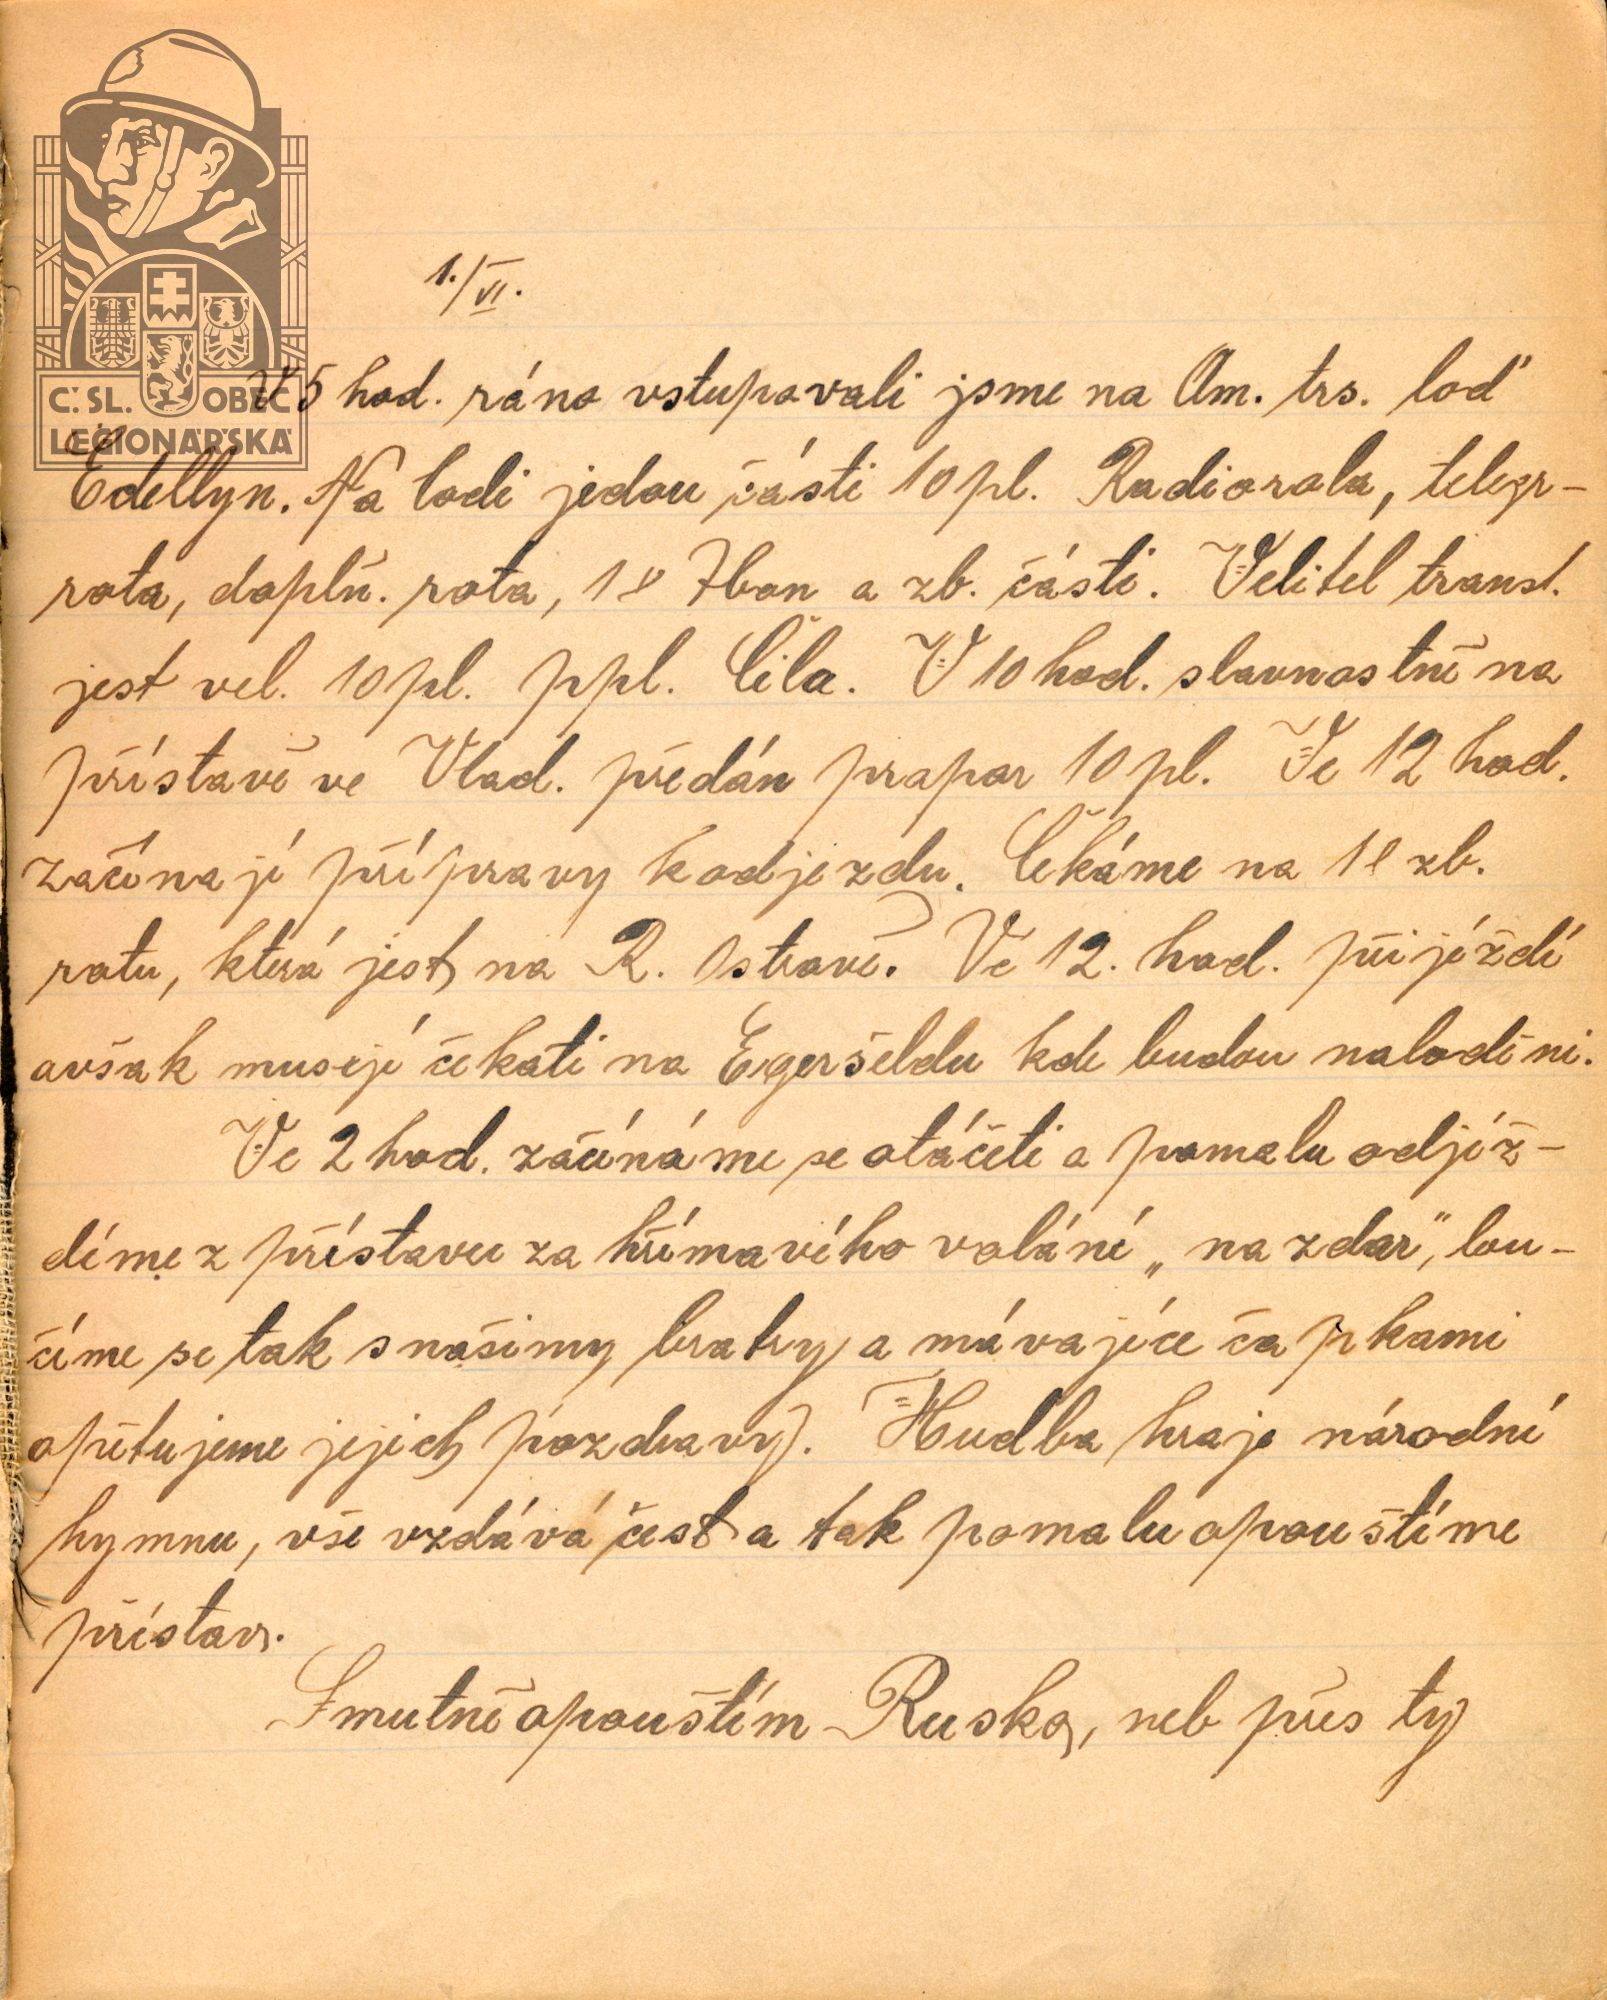 Č. SL. OBEC
LEGIONÁŘSKÁ
1./VI.
V 5 hod. ráno vstupovali jsme na Am. trs. loď
Edellyn. Na lodi jedou části 10 pl. Radiorota, telegr-
rota, doplň. rota, a zb. části. Velitel transt.
jest vel. 10 pl. ppl. Čila. V 10 hod. slavnostně na
přístavě ve Vlad. předán prapor 10 pl. Ve 12 hod.
začínají přípravy k odjezdu. Čekáme na zb.
rotu, která jest na R. Ostrově. Ve 12. hod. přijíždí
avšak musejí čekati na Egeršeldu kde budou naloděni.
Ve 2 hod. začínáme se otáčeti a pomalu odjíž-
díme z přístavu za hřímavého volání „na zdar", lou-
číme se tak s našimy bratry a mávajíce čapkami
opětujeme jejich pozdravy. Hudba hraje národní
hymnu, vše vzdává čest a tak pomalu opouštíme
přístav.
Smutně opouštím Rusko, neb přes ty